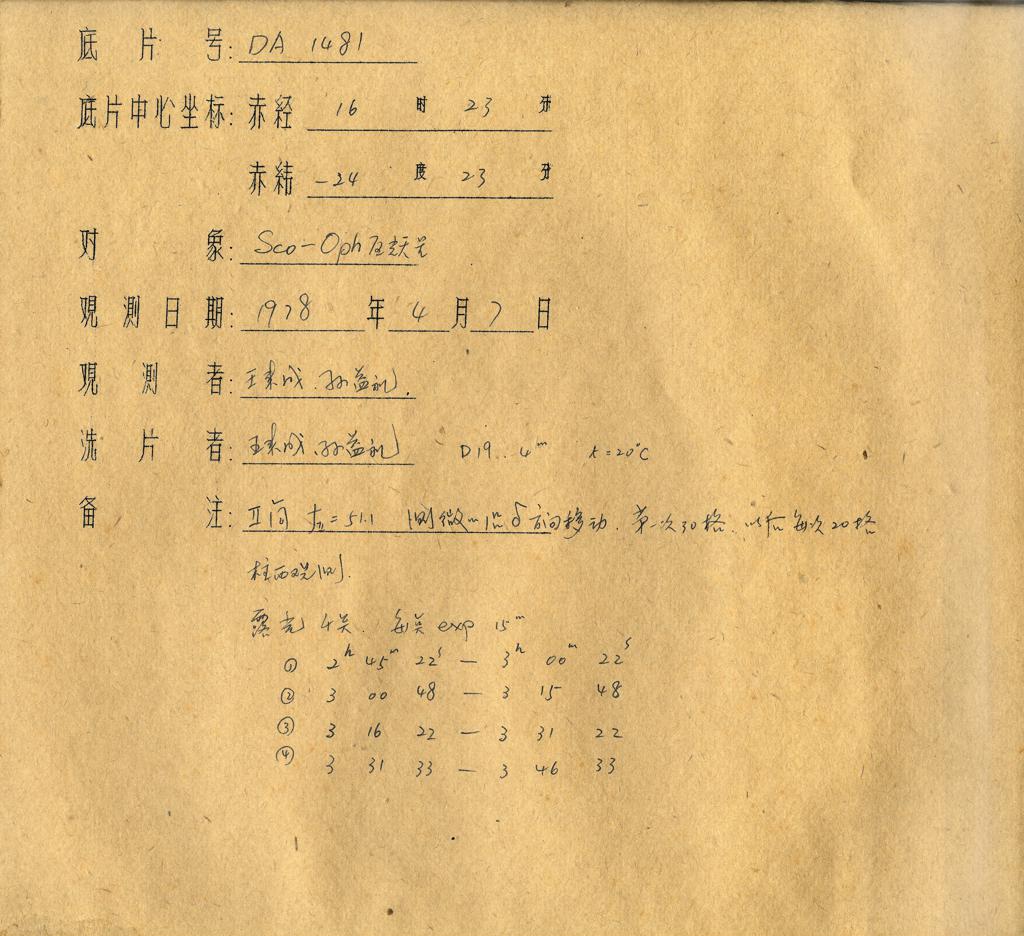 底片号: DA 1481
底片中心坐标: 赤经 16 时 23 分
赤纬 -24 度 23 分
对象: Sco-Oph 区
观测日期: 1978 年 4 月 7 日
观测者: 孙益礼.
洗片者: 孙益礼 D19. 4ᵐ t=20°C
备注: II 间 = 51.1 测微 沿 δ 方向移动. 第一次30格. 以后每次20格
柱西观测.
露光 4次. 每次 exp 15ᵐ
① 2ʰ 45ᵐ 22ˢ — 3ʰ 00ᵐ 22ˢ
② 3 00 48 — 3 15 48
③ 3 16 22 — 3 31 22
④ 3 31 33 — 3 46 33